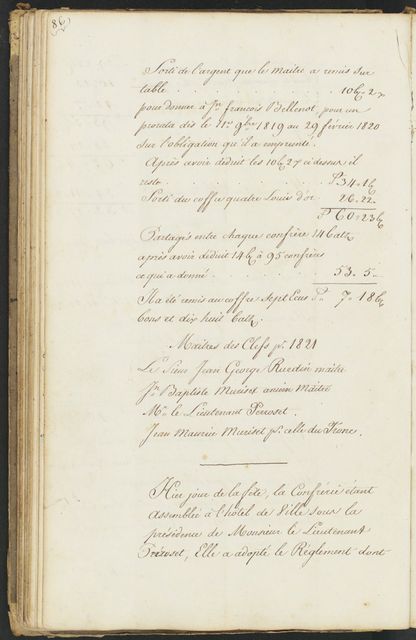 86
Sorti de l'argent que le maitre a remis sur
table . . . . . . . . . 10 27
pour donner à Jn François Bellenot, pour un
prorata dès le 11e 9bre 1819 au 29 février 1820
sur l'obligation qu'il a empruntée.
Après avoir déduit les 10 27 ci dessus, il
reste . . . . . . . . P 34 16
Sorti du coffre quatre Louis d'or 26.22
P 60 23
Partagés entre chaque confrère 14 batz
après avoir déduit 14 à 95 confrères
ce qui a donné . . . . . . 53.5
Il a été remis au coffre Sept Ecus P 7 18
bons et dix huit batz.
Maitres des Clefs pr 1821
Le Sieur Jean George Ruedin maitre
Jn Baptiste Muriset ancien Maitre
Mr le Lieutenant Perroset.
Jean Maurice Muriset pr celle du Tronc.
Hier jour de la fête, la Confrérie étant
Assemblée à l'hôtel de Ville sous la
présidence de Monsieur le Lieutenant
Perroset, Elle a adopté le Réglement dont